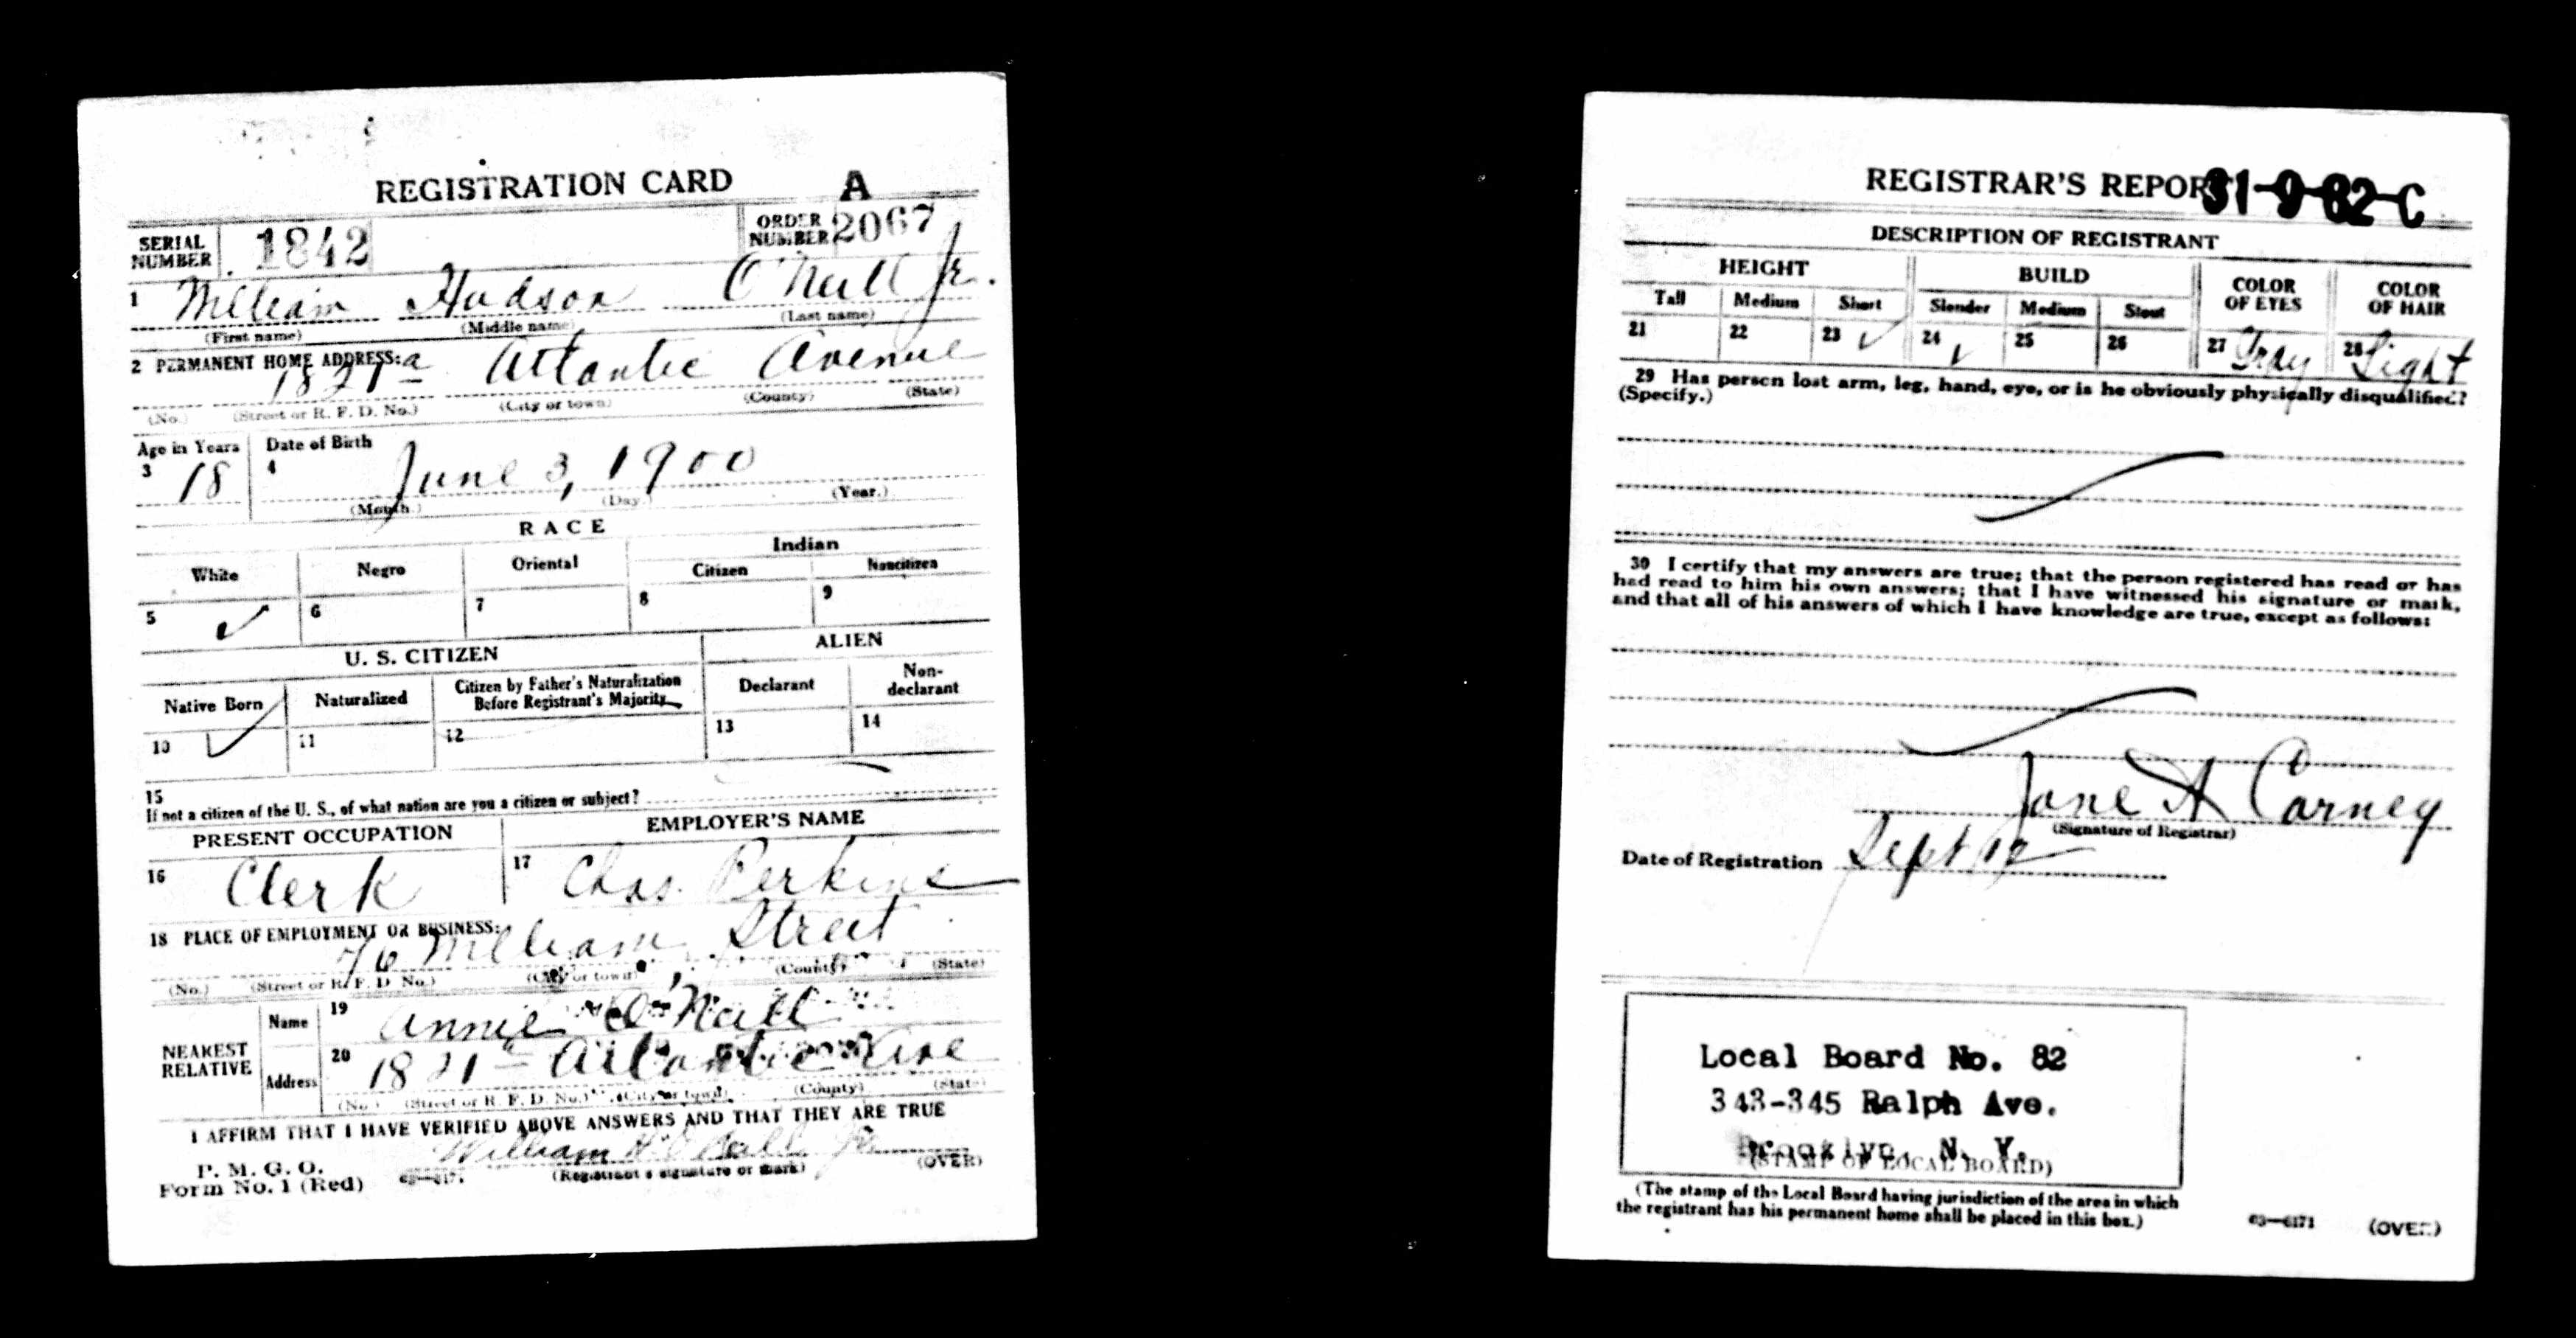 REGISTRATION CARD A
SERIAL NUMBER 1842 ORDER NUMBER 2067
1 William Hudson O'Neill Jr.
(First name) (Middle name) (Last name)
2 PERMANENT HOME ADDRESS:
1821 a Atlantic Avenue
(No.) (Street or R. F. D. No.) (City or town) (County) (State)
Age in Years Date of Birth
3 18 4 June 3, 1900
(Month.) (Day.) (Year.)
RACE
White Negro Oriental Indian
Citizen Noncitizen
5 ✓ 6 7 8 9
U. S. CITIZEN ALIEN
Native Born Naturalized Citizen by Father's Naturalization Before Registrant's Majority Declarant Non-declarant
10 ✓ 11 12 13 14
15
If not a citizen of the U. S., of what nation are you a citizen or subject?
PRESENT OCCUPATION EMPLOYER'S NAME
16 Clerk 17 Chas. Perkins
18 PLACE OF EMPLOYMENT OR BUSINESS:
76 William Street
(No.) (Street or R. F. D. No.) (City or town) (County) (State)
NEAREST RELATIVE
Name 19 Annie O'Neill
Address 20 1821 a Atlantic Ave
(No.) (Street or R. F. D. No.) (City or town) (County) (State)
I AFFIRM THAT I HAVE VERIFIED ABOVE ANSWERS AND THAT THEY ARE TRUE
William H. O'Neill Jr
P. M. G. O.
Form No. 1 (Red) (Registrant's signature or mark) (OVER)
REGISTRAR'S REPORT
31-9-82-C
DESCRIPTION OF REGISTRANT
HEIGHT BUILD COLOR OF EYES COLOR OF HAIR
Tall Medium Short Slender Medium Stout
21 22 23 ✓ 24 ✓ 25 26 27 Gray 28 Light
29 Has person lost arm, leg, hand, eye, or is he obviously physically disqualified?
(Specify.)
30 I certify that my answers are true; that the person registered has read or has
had read to him his own answers; that I have witnessed his signature or mark,
and that all of his answers of which I have knowledge are true, except as follows:
Jane A Carney
(Signature of Registrar)
Date of Registration Sept 12
Local Board No. 82
343-345 Ralph Ave.
Brooklyn, N. Y.
(STAMP OF LOCAL BOARD)
(The stamp of the Local Board having jurisdiction of the area in which
the registrant has his permanent home shall be placed in this box.)
63—6171 (OVER)